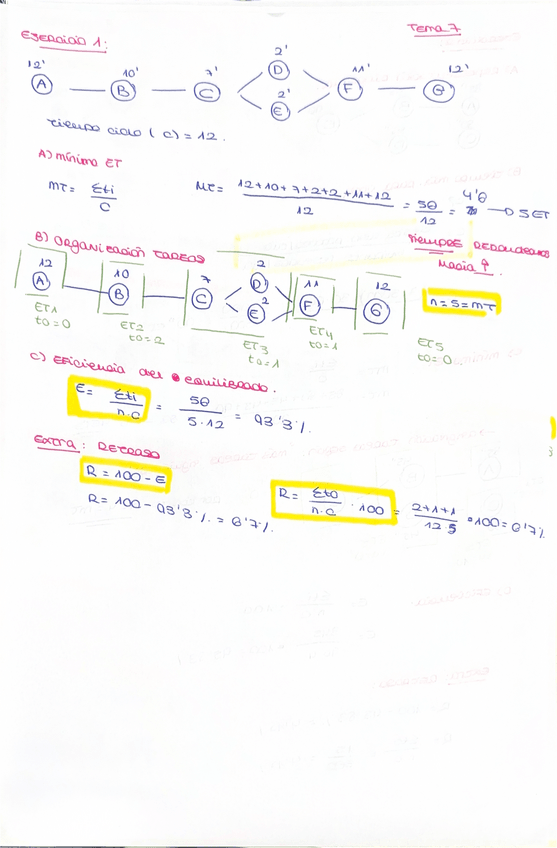 Tema 7
Ejercicio 1:
12' 10' 7' 2' 11' 12'
A B C D F G
2'
E
tiempo ciclo (C) = 12.
A) mínimo ET
MT = Σti / C
MT = 12+10+7+2+2+11+12 / 12 = 56 / 12 = 4'6 → 5 ET
B) Organización tareas
tiempos redondeamos hacia ↑.
12 10 7 2 11 12
A B C D F G
2
E
n = 5 = MT
ET1 ET2 ET3 ET4 ET5
to=0 to=2 to=1 to=1 to=0
C) Eficiencia del equilibrado.
E = Σti / n.C = 56 / 5.12 = 93'3%.
Extra: Retraso
R = 100 - E
R = 100 - 93'3% = 6'7%.
R = Σto / n.C · 100 = 2+1+1 / 12.5 · 100 = 6'7%